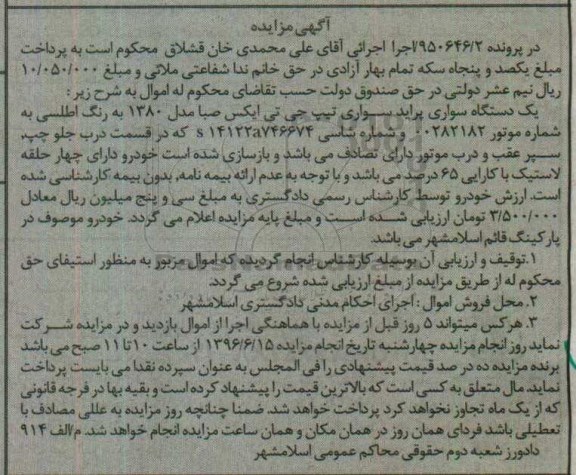 آگهی مزایده
در پرونده ۹۵۰۶۴۶/۲/اجرا اجرائی آقای علی محمدی خان قشلاق محکوم است به پرداخت
مبلغ یکصد و پنجاه سکه تمام بهار آزادی در حق خانم ندا شفاعتی ملائی و مبلغ ۱۰/۰۵۰/۰۰۰
ریال نیم عشر دولتی در حق صندوق دولت حسب تقاضای محکوم له اموال به شرح زیر:
یک دستگاه سواری پراید سواری تیپ جی تی ایکس صبا مدل ۱۳۸۰ به رنگ اطلسی به
شماره موتور ۰۰۲۸۲۱۸۲ و شماره شاسی s ۱۴۱۲۲a۷۴۶۶۷۴ که در قسمت درب جلو چپ،
سپر عقب و درب موتور دارای تصادف می باشد و بازسازی شده است خودرو دارای چهار حلقه
لاستیک با کارایی ۶۵ درصد می باشد و با توجه به عدم ارائه بیمه نامه، بدون بیمه کارشناسی شده
است. ارزش خودرو توسط کارشناس رسمی دادگستری به مبلغ سی و پنج میلیون ریال معادل
۳/۵۰۰/۰۰۰ تومان ارزیابی شده است و مبلغ پایه مزایده اعلام می گردد. خودرو موصوف در
پارکینگ قائم اسلامشهر می باشد.
۱.توقیف و ارزیابی آن بوسیله کارشناس انجام گردیده که اموال مزبور به منظور استیفای حق
محکوم له از طریق مزایده از مبلغ ارزیابی شده شروع می گردد.
۲. محل فروش اموال: اجرای احکام مدنی دادگستری اسلامشهر
۳. هرکس میتواند ۵ روز قبل از مزایده با هماهنگی اجرا از اموال بازدید و در مزایده شرکت
نماید روز انجام مزایده چهارشنبه تاریخ انجام مزایده ۱۳۹۶/۶/۱۵ از ساعت ۱۰ تا ۱۱ صبح می باشد
برنده مزایده ده در صد قیمت پیشنهادی را فی المجلس به عنوان سپرده نقدا می بایست پرداخت
نماید. مال متعلق به کسی است که بالاترین قیمت را پیشنهاد کرده است و بقیه بها در فرجه قانونی
که از یک ماه تجاوز نخواهد کرد پرداخت خواهد شد. ضمنا چنانچه روز مزایده به عللی مصادف با
تعطیلی باشد فردای همان روز در همان مکان و همان ساعت مزایده انجام خواهد شد. م/الف ۹۱۴
دادورز شعبه دوم حقوقی محاکم عمومی اسلامشهر